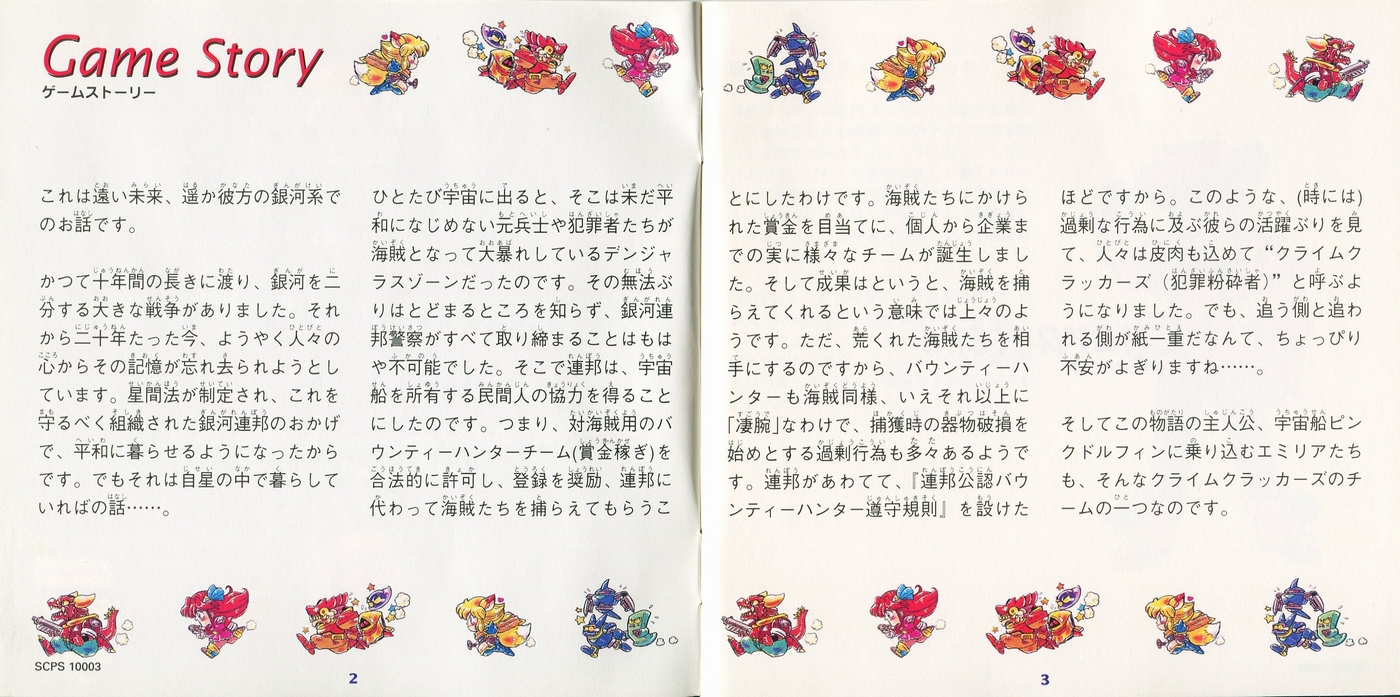 Game Story
ゲームストーリー
これは遠い未来、遥か彼方の銀河系で
のお話です。
かつて十年間の長きに渡り、銀河を二
分する大きな戦争がありました。それ
から二十年たった今、ようやく人々の
心からその記憶が忘れ去られようとし
ています。星間法が制定され、これを
守るべく組織された銀河連邦のおかげ
で、平和に暮らせるようになったから
です。でもそれは自星の中で暮らして
いればの話……。
ひとたび宇宙に出ると、そこは未だ平
和になじめない元兵士や犯罪者たちが
海賊となって大暴れしているデンジャ
ラスゾーンだったのです。その無法ぶ
りはとどまるところを知らず、銀河連
邦警察がすべて取り締まることはもは
や不可能でした。そこで連邦は、宇宙
船を所有する民間人の協力を得ること
にしたのです。つまり、対海賊用のバ
ウンティーハンターチーム(賞金稼ぎ)を
合法的に許可し、登録を奨励、連邦に
代わって海賊たちを捕らえてもらうこ
SCPS 10003
2
とにしたわけです。海賊たちにかけら
れた賞金を目当てに、個人から企業ま
での実に様々なチームが誕生しまし
た。そして成果はというと、海賊を捕
らえてくれるという意味では上々のよ
うです。ただ、荒くれた海賊たちを相
手にするのですから、バウンティーハ
ンターも海賊同様、いえそれ以上に
「凄腕」なわけで、捕獲時の器物破損を
始めとする過剰行為も多々あるようで
す。連邦があわてて、『連邦公認バウ
ンティーハンター遵守規則』を設けた
ほどですから。このような、(時には)
過剰な行為に及ぶ彼らの活躍ぶりを見
て、人々は皮肉も込めて“クライムク
ラッカーズ（犯罪粉砕者）”と呼ぶよ
うになりました。でも、追う側と追わ
れる側が紙一重だなんて、ちょっぴり
不安がよぎりますね……。
そしてこの物語の主人公、宇宙船ピン
クドルフィンに乗り込むエミリアたち
も、そんなクライムクラッカーズのチ
ームの一つなのです。
3